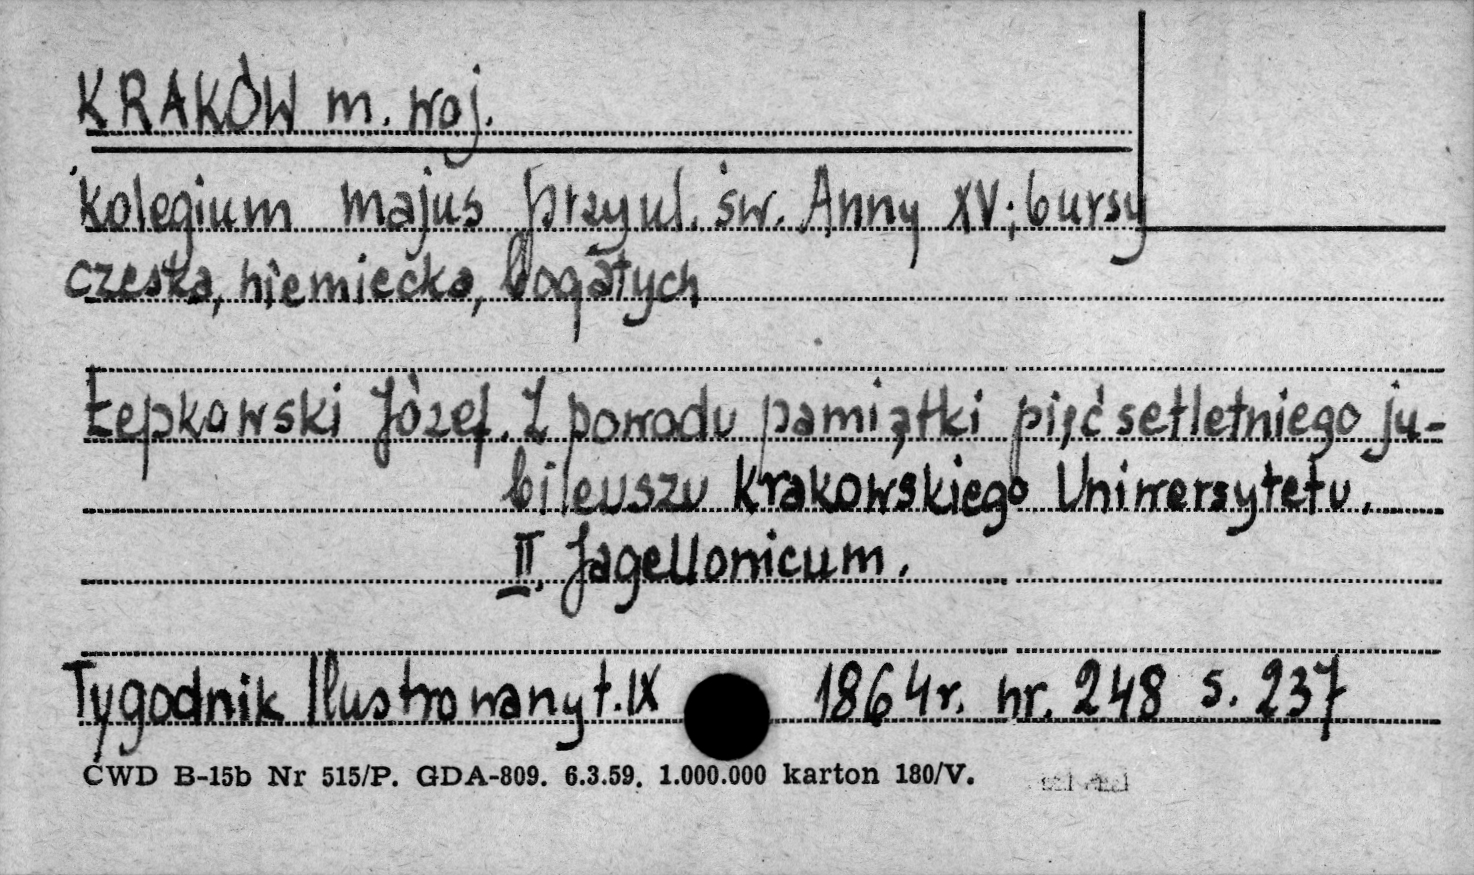 KRAKÓW m. woj.
Kolegium majus przy ul. św. Anny XV; bursy
czeska, niemiecka, bogatych
Łepkowski Józef. Z powodu pamiątki pięćsetletniego ju-
bileuszu krakowskiego Uniwersytetu.
II. Jagellonicum.
Tygodnik Ilustrowany t. IX 1864 r. nr. 248 s. 237
CWD B-15b Nr 515/P. GDA-809. 6.3.59. 1.000.000 karton 180/V.